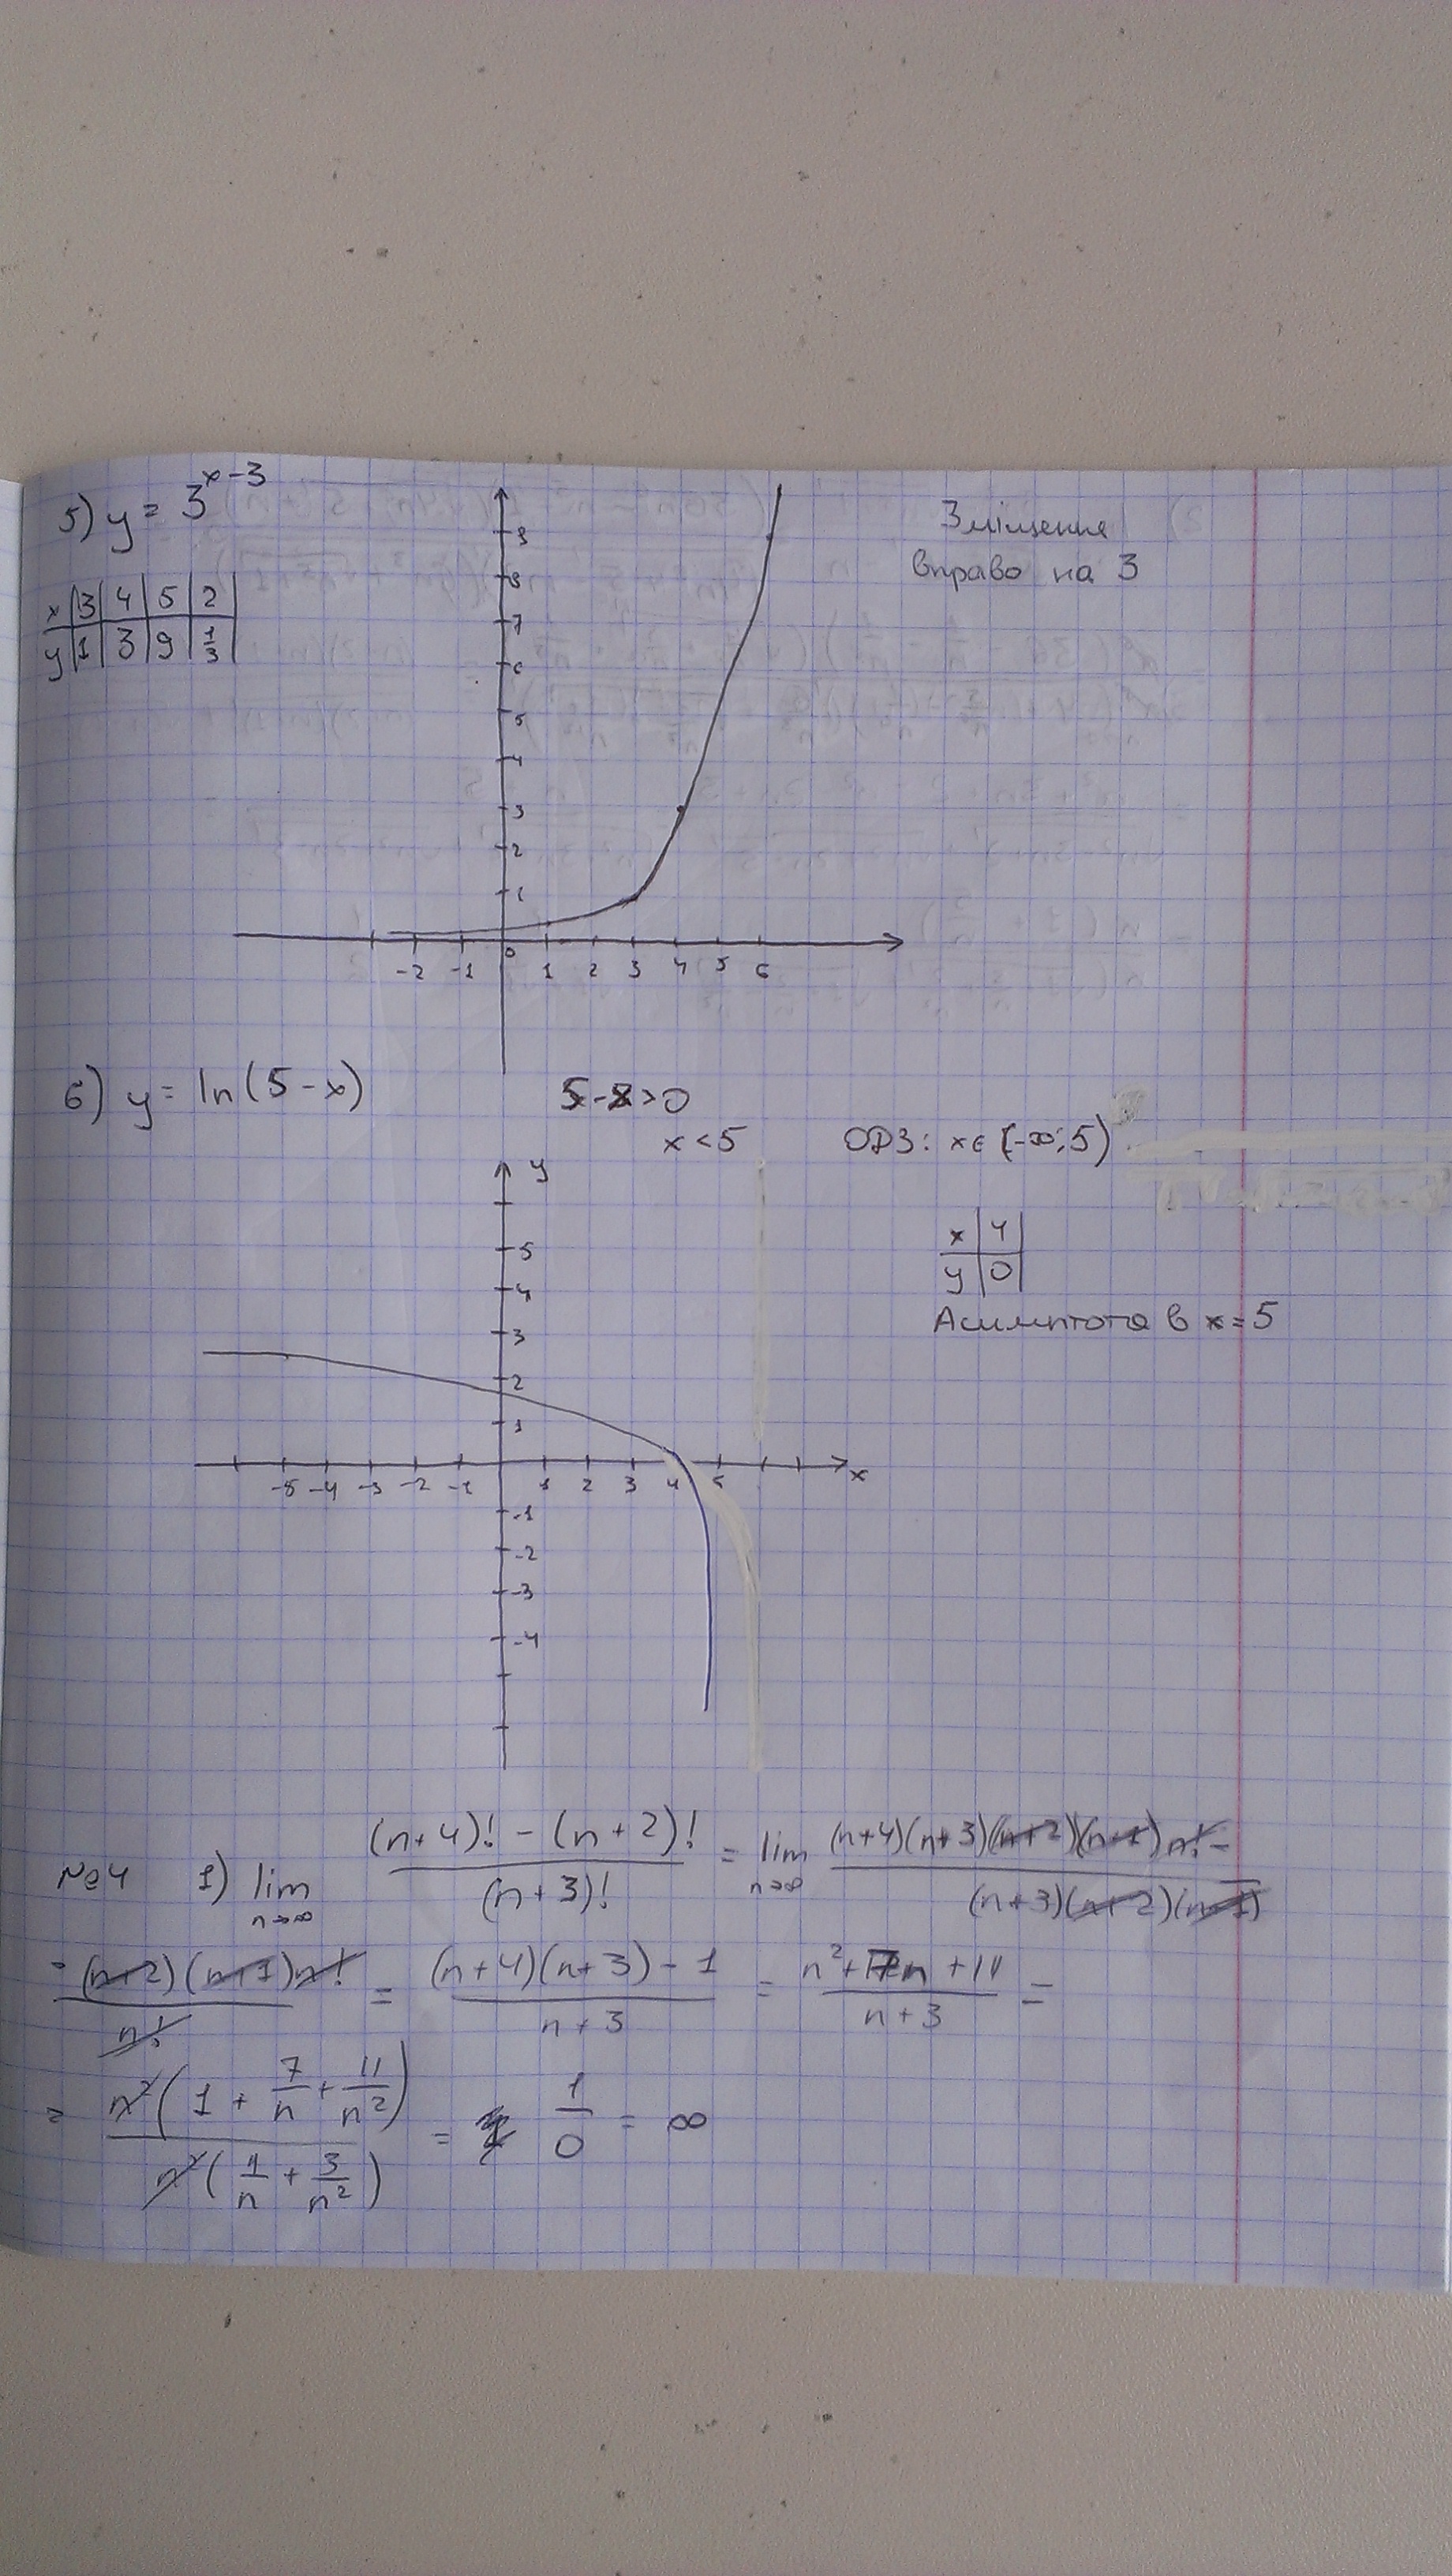 5) y = 3^{x-3}
Зміщення
вправо на 3
x | 3 | 4 | 5 | 2
y | 1 | 3 | 9 | 1/3
9
8
7
6
5
4
3
2
1
-2 -1 0 1 2 3 4 5 6
6) y = ln(5-x)
5-x>0
x<5
ОДЗ: x∈(-∞;5)
y
x | 4
y | 0
Асимптота в x=5
5
4
3
2
1
x
-5 -4 -3 -2 -1 1 2 3 4 5
-1
-2
-3
-4
№4 1) lim_{n→∞} ((n+4)! - (n+2)!)/((n+3)!) = lim_{n→∞} ((n+4)(n+3)(n+2)(n+1)n! -)/((n+3)(n+2)(n+1))
(-(n+2)(n+1)n!)/(n!) = ((n+4)(n+3)-1)/(n+3) = (n²+7n+11)/(n+3) =
= (n²(1 + 7/n + 11/n²))/(n²(1/n + 3/n²)) = 1/0 = ∞